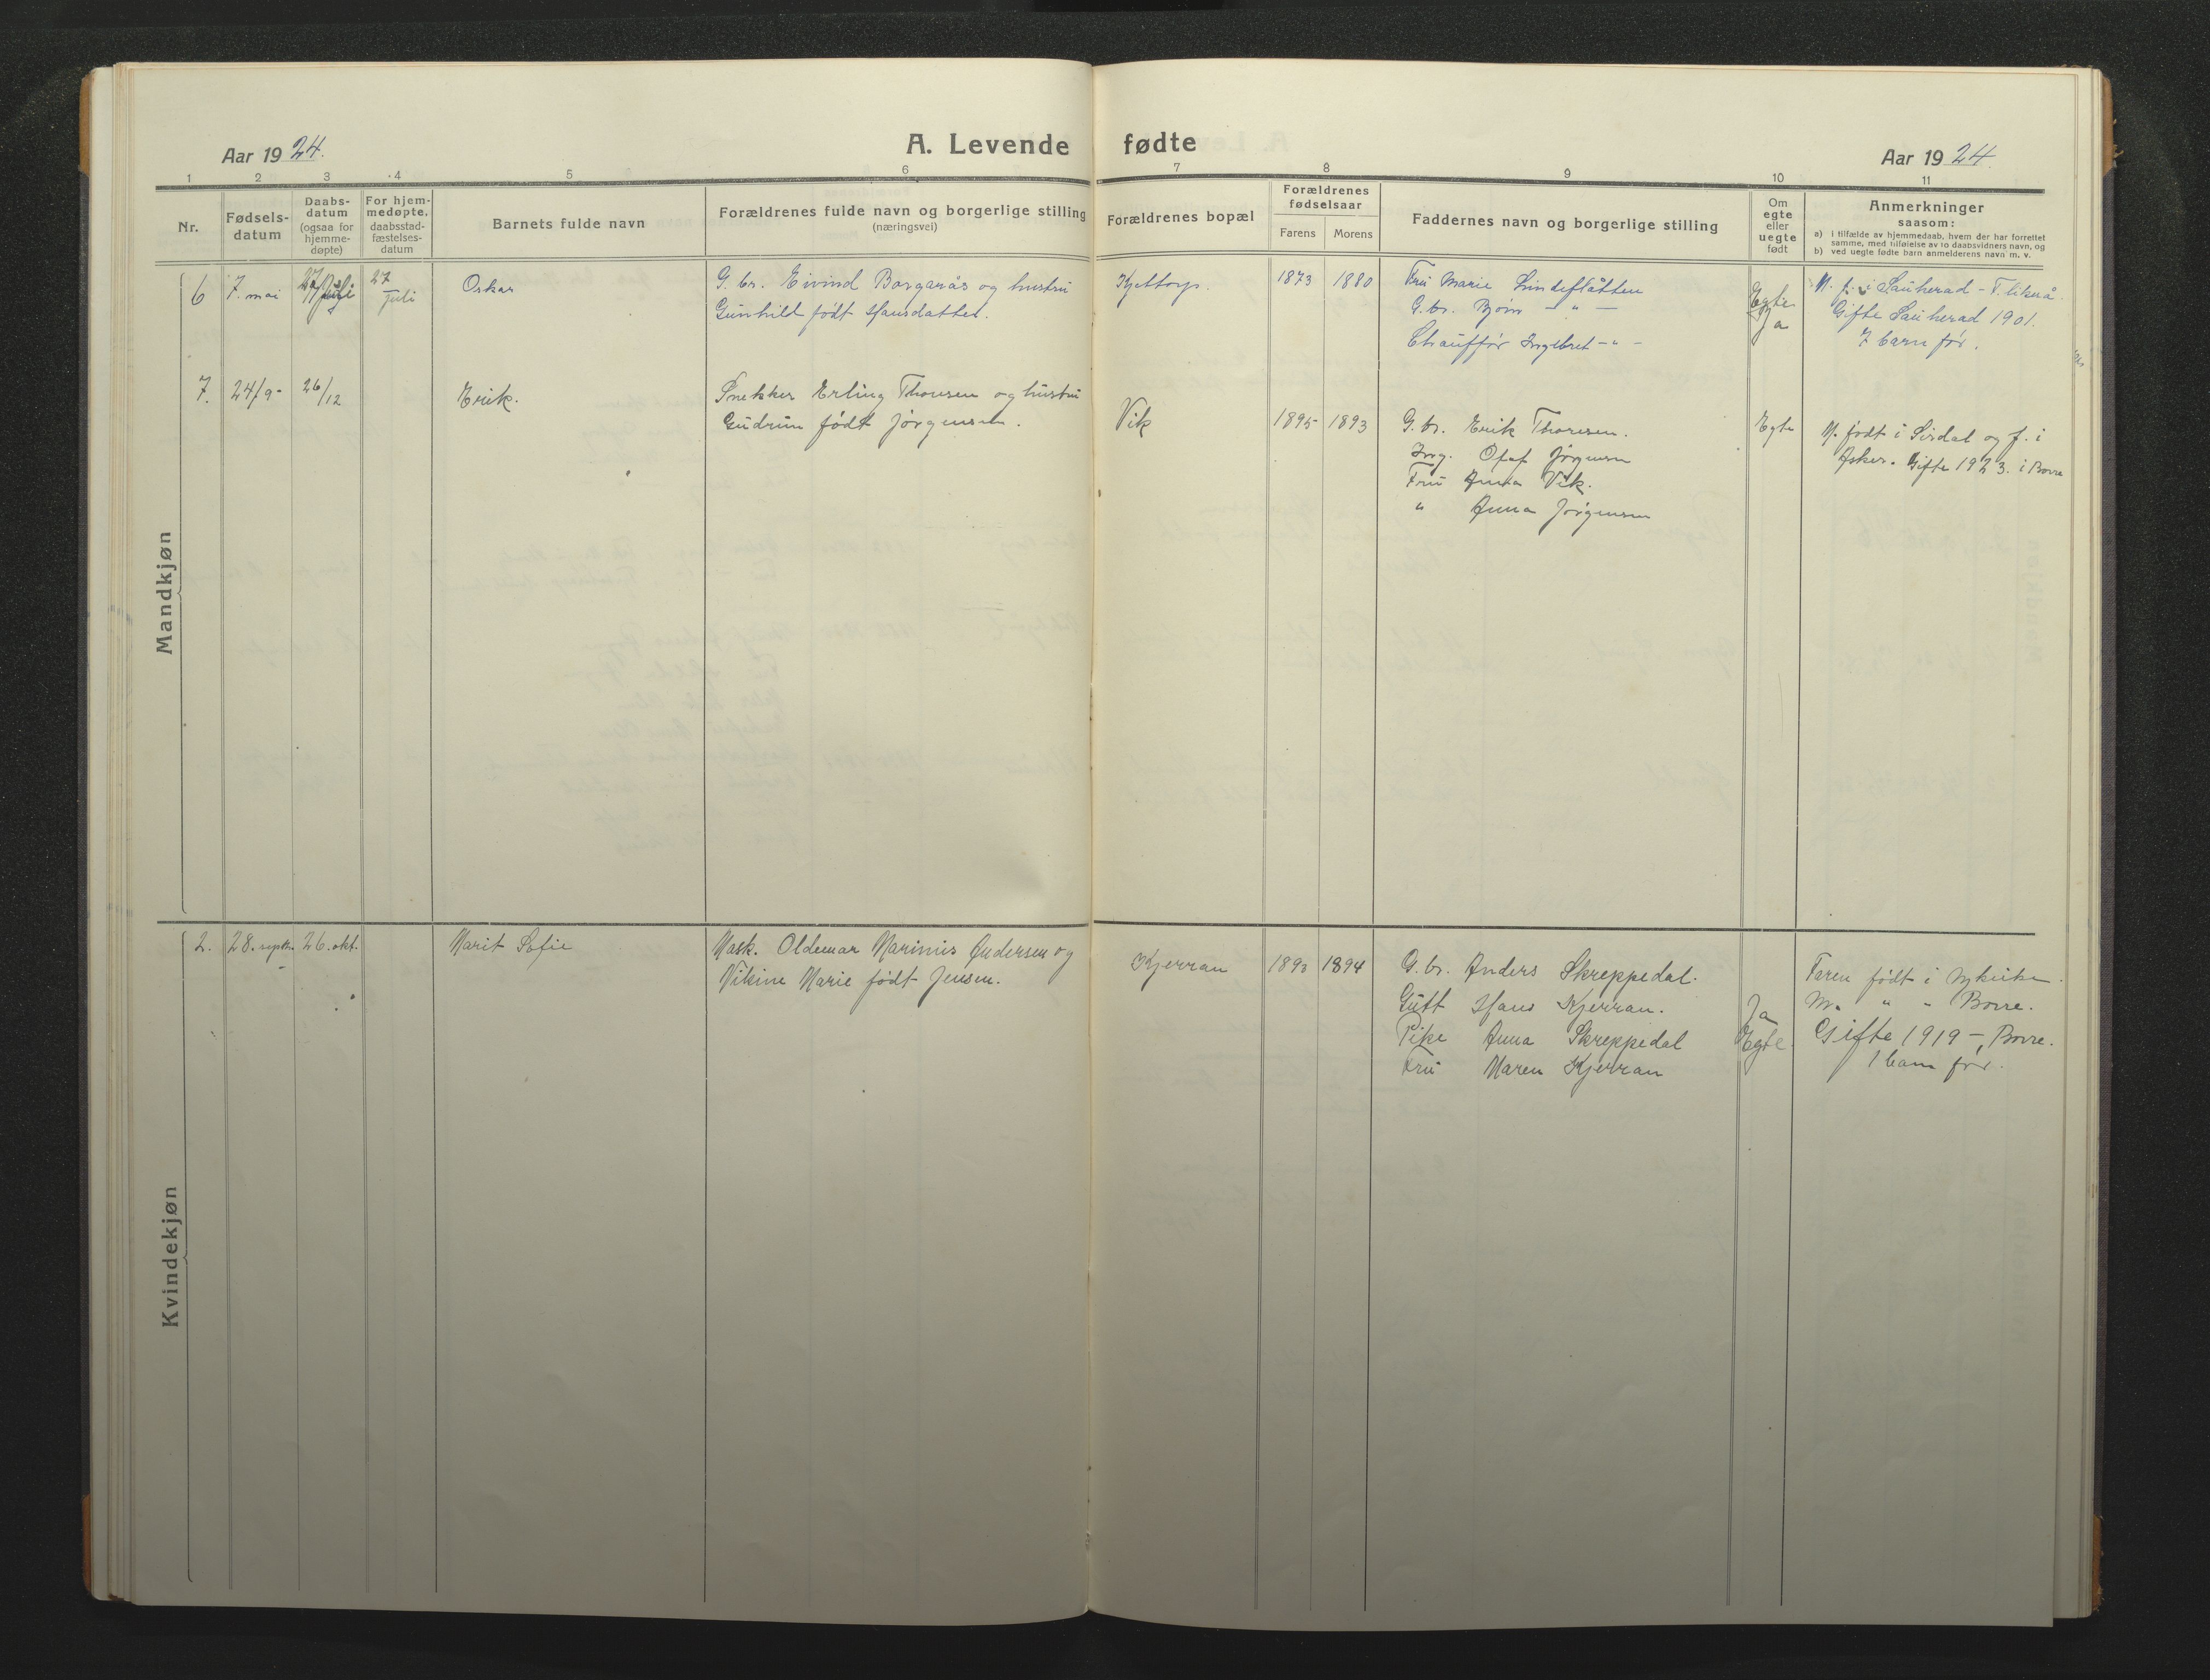 Aar 1924.
A. Levende fødte
Aar 1924
1 2 3 4 5 6 7 8 9 10 11
Nr.
Fødsels-
datum
Daabs-
datum
(ogsaa for
hjemme-
døpte)
For hjem-
medøpte,
daabsstad-
fæstelses-
datum
Barnets fulde navn
Forældrenes fulde navn og borgerlige stilling
(næringsvei)
Forældrenes bopæl
Forældrenes
fødselsaar
Farens Morens
Faddernes navn og borgerlige stilling
Om
egte
eller
uegte
født
Anmerkninger
saasom:
a) i tilfælde av hjemmedaab, hvem der har forrettet
samme, med tilføielse av to daabsvidners navn, og
b) ved uegte fødte barn anmelderens navn m. v.
Mandkjøn
6
7. mai
27
juli
Oskar
G.br. Eivind Borgarås og hustru
Gunhild født Hansdatter.
Kjettorp.
1873 1880
Fru Marie Lindeflåtten
G.br. Bjørn - " -
Chauffør Ingebret - " -
Egte
Ja
Sauherad
Gifte Sauherad 1901.
7 barn før.
7.
24/9-
26/12
Erik.
Snekker Erling Thoresen og hustru
Gudrun født Jørgensen.
Vik
1895 1893
G.br. Erik Thoresen.
Ing. Olaf Jørgensen
Fru Anna Vik.
" Anna Jørgensen
Egte
M. født i Sirdal og f. i
Asker. Gifte 1923. i Borre
Kvindekjøn
2.
28. septbr.
26. okt.
Marit Sofie
Mask. Oldemar Marinius Andersen og
Vikine Marie født Jensen.
Kjerran
1893 1894
G.br. Anders Skreppedal.
Gutt Hans Kjerran.
Pike Anna Skreppedal
Fru Maren Kjerran
Ja
Egte.
Faren født i Nykirke.
M. " - Borre.
Gifte 1919 -, Borre.
1 barn før.